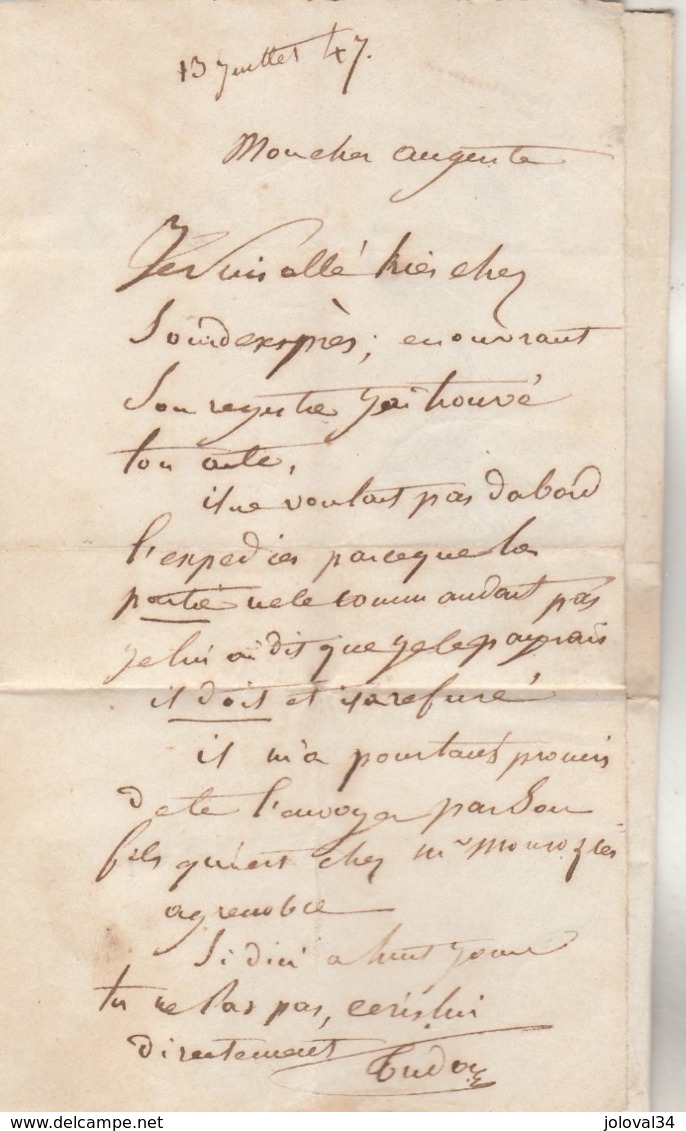 13 juillet 47.
Mon cher auguste
Je suis allé hier chez
exprès ; en ouvrant
son registre j'ai trouvé
ton acte,
il ne voulait pas dabord
l'expedier parceque la
partie ne le commandait pas
je lui ai dit que je le payrais
il doit et il a refusé
il m'a pourtant promis
de te l'envoyer par son
fils qui est chez mr
a grenoble
Si dici a huit jours
tu ne las pas, ecris lui
directement
delcampe.net
joloval34